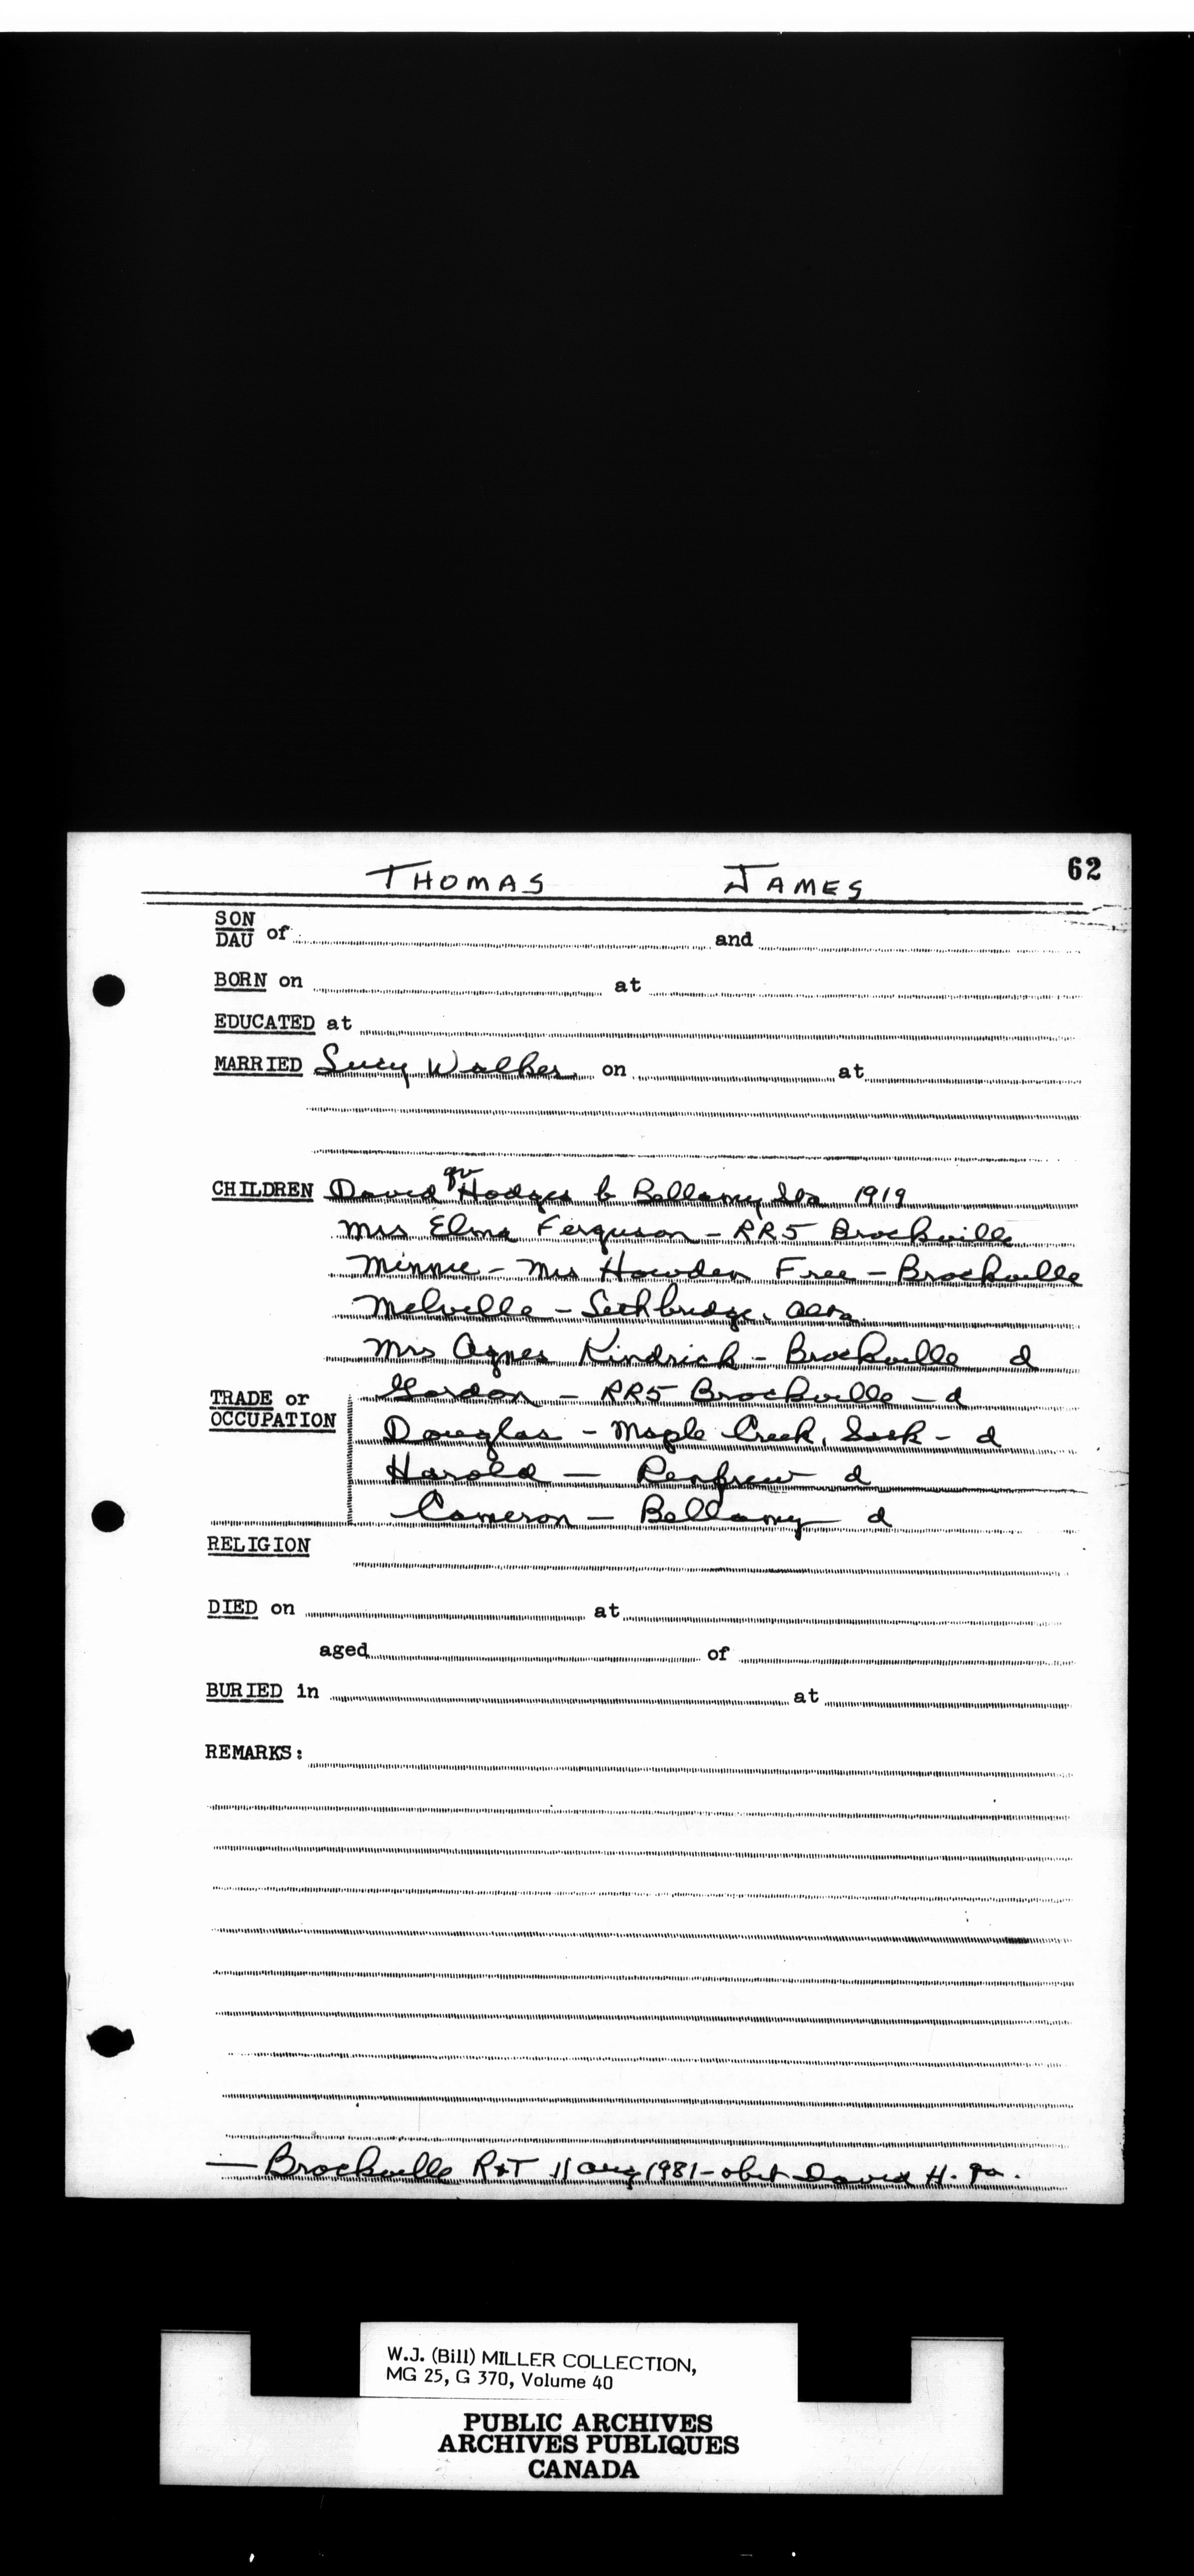 THOMAS JAMES 62
SON
DAU of and
BORN on at
EDUCATED at
MARRIED Lucy Walker on at
qv
CHILDREN David Hodges b Bellamy Sta 1919
Mrs Elma Ferguson - RR5 Brockville
Minnie - Mrs Howden Free - Brockville
Melville - Lethbridge, Alta.
Mrs Agnes Kindrick - Brockville d
TRADE or Gordon - RR5 Brockville - d
OCCUPATION Douglas - Maple Creek, Sask - d
Harold - Renfrew d
Cameron - Bellamy d
RELIGION
DIED on at
aged of
BURIED in at
REMARKS:
— Brockville R&T 11 Aug 1981 - obit David H. qv.
W.J. (Bill) MILLER COLLECTION,
MG 25, G 370, Volume 40
PUBLIC ARCHIVES
ARCHIVES PUBLIQUES
CANADA